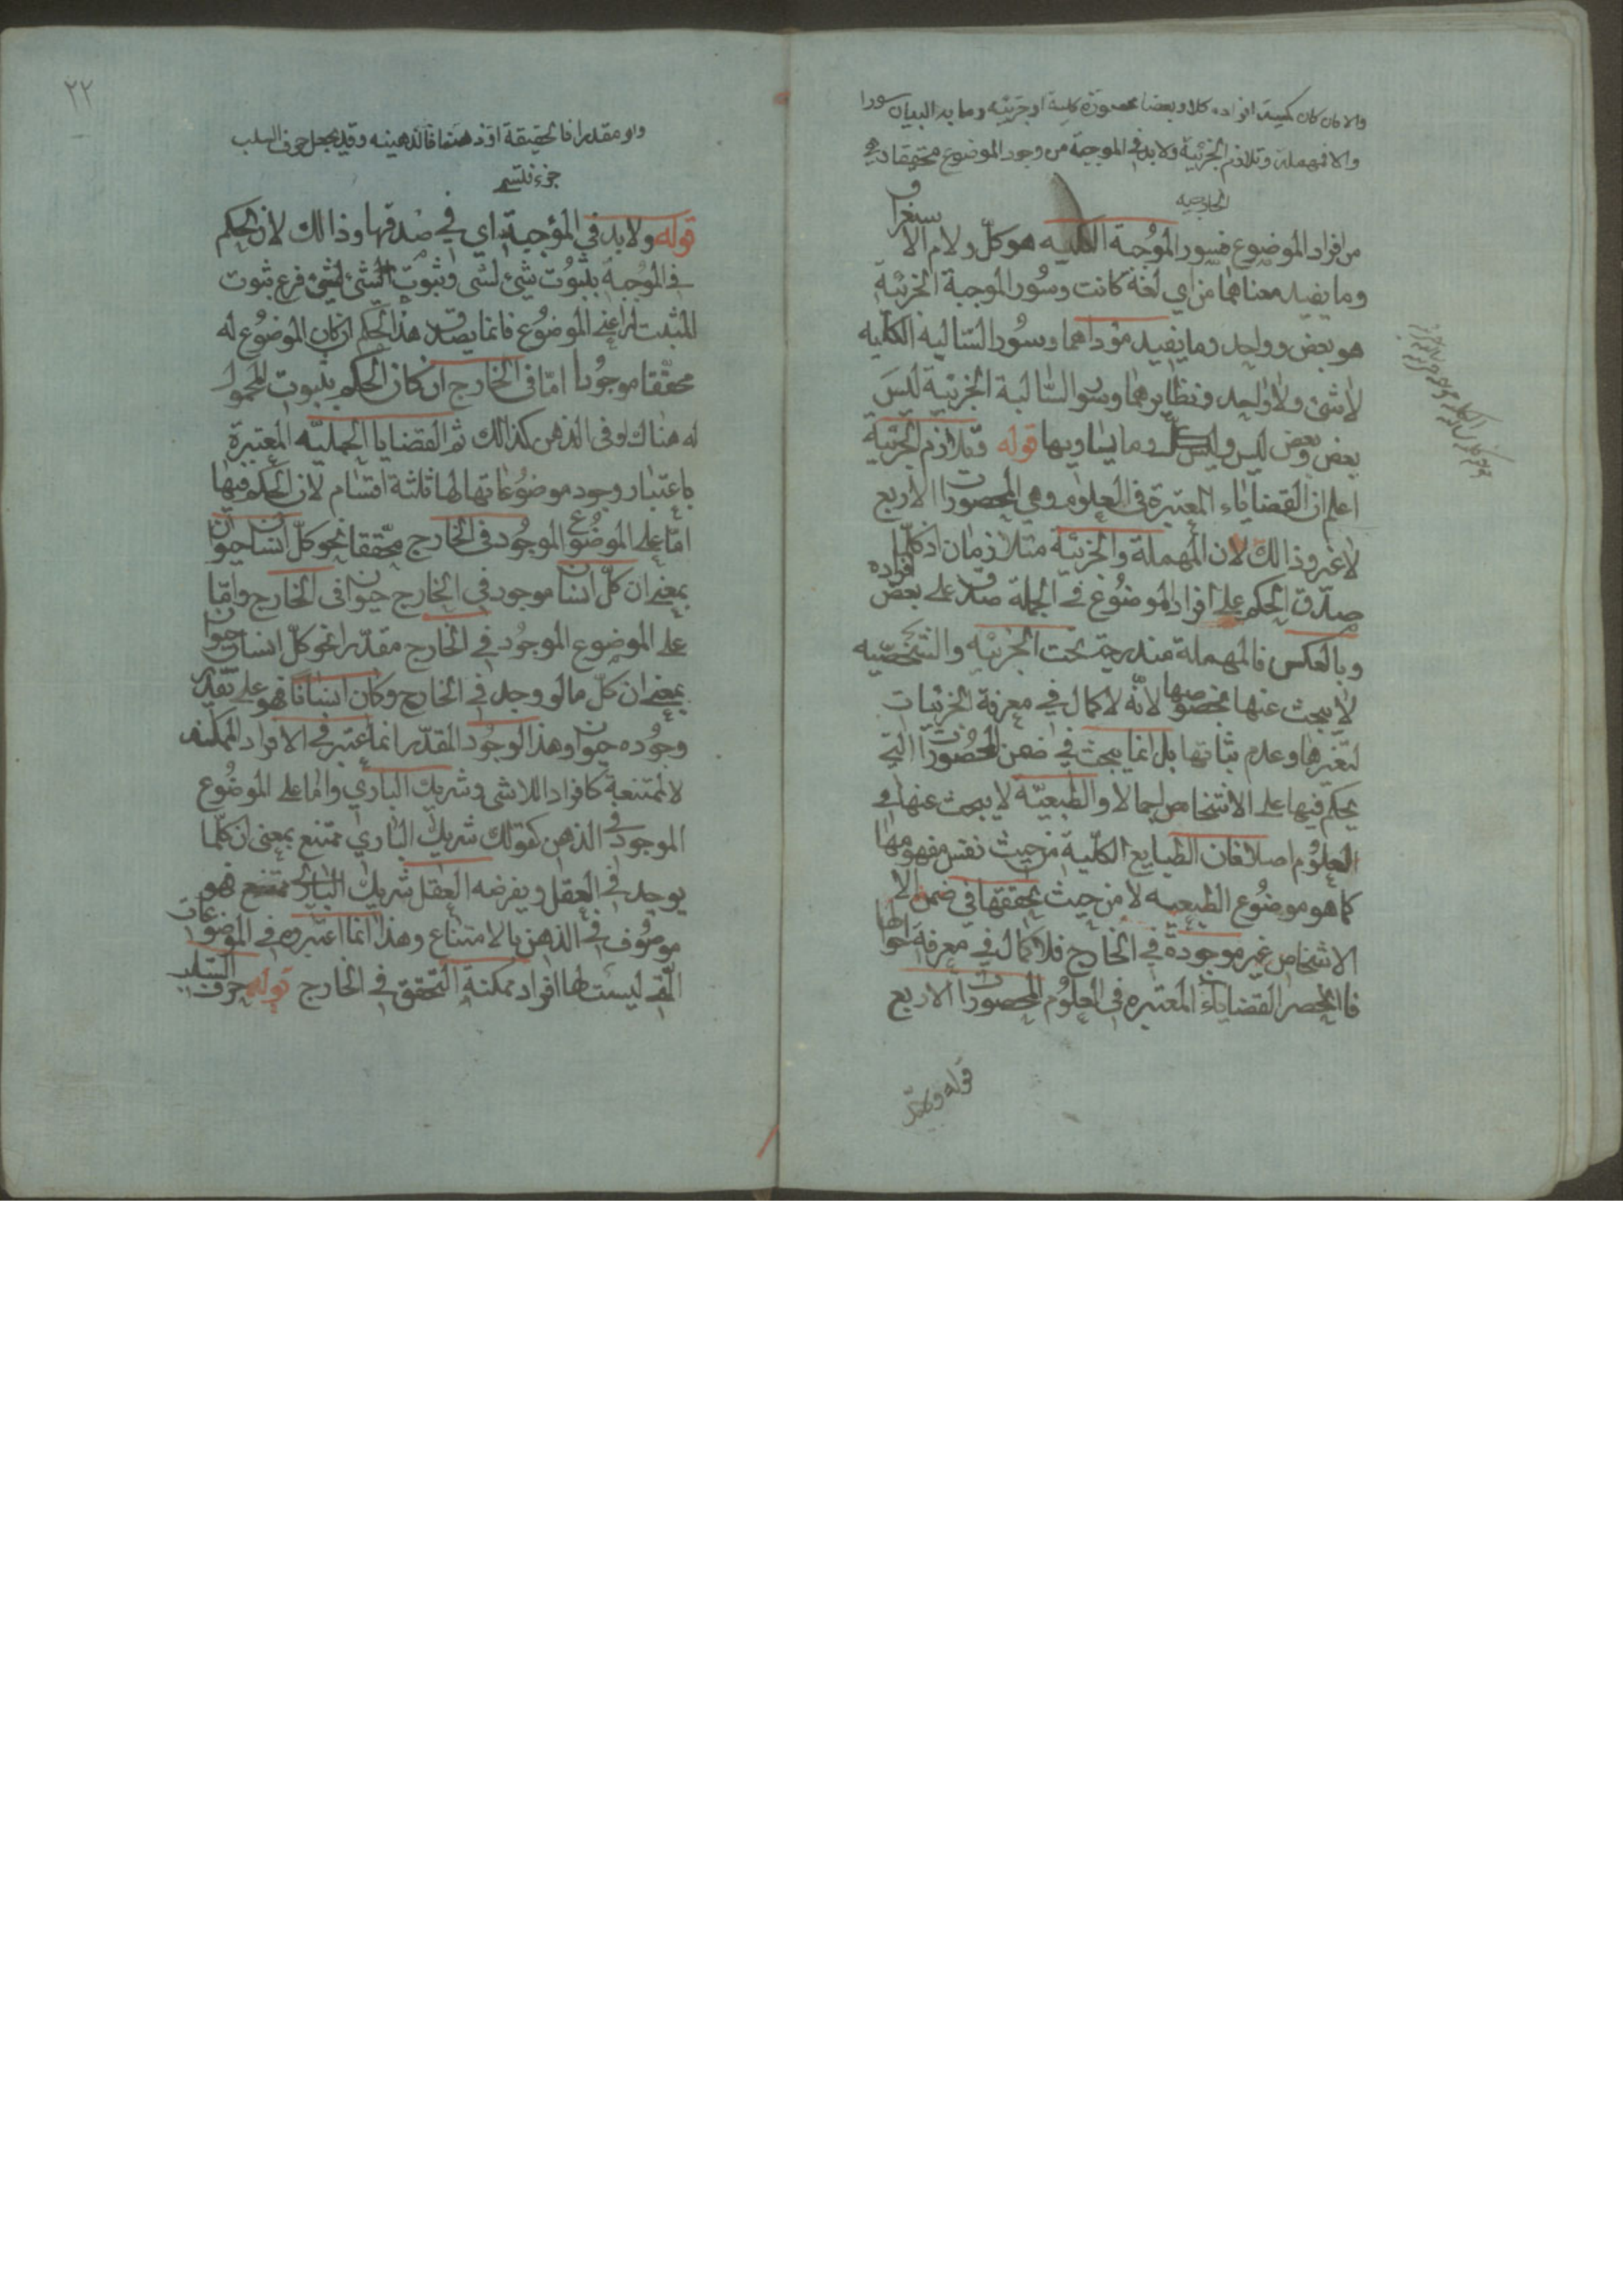 والا فان كان كمية افراده كلا و بعضا محصورة كلية او جزئية وما به البيان سورا
والا فمهملة وتلازم الجزئية ولابد في الموجبة من وجود الموضوع محققا وهى
الخارجية
من افراد الموضوع فسور الموجبة الكلية هو كلّ ولام الاستغراق
وما يفيد معناهما من اي لغة كانت وسور الموجبة الجزئية
هو بعض وواحد وما يفيد مؤداهما وسور السالبة الكلية
لاشئ ولاواحد ونظايرهما وسور السّالبة الجزئية ليس
بعض وبعض ليس وليس كلّ وما يساويها قوله وتلازم الجزئية
اعلم ان القضاياء المعتبرة في العلوم وهي المحصورات الاربع
لاغير وذالك لان المهملة والجزئية متلازمان اذ كلما
صدق الحكم على افراد الموضوع في الجملة صدق على بعض افراده
وبالعكس فالمهملة مندرجة تحت الجزئيه والشخصيه
لا يبحث عنها بخصوصها لانّه لا كمال في معرفة الجزئيات
لتغيرها وعدم ثباتها بل انما يبحث في ضمن المحصورات التي
يحكم فيها على الاشخاص اجمالا والطبعيّه لا يبحث عنها في
العلوم اصلا فان الطبايع الكلّية من حيث نفس مفهومها
كما هو موضوع الطبعيه لا من حيث تحققها في ضمن الا
الاشخاص غير موجودة في الخارج فلا كمال في معرفة احوالها
فاانحصر القضاياء المعتبره في العلوم المحصورات الاربع
قوله ولابدّ
٢٢
او مقدرا فالحقيقة او ذهنا فالذهنيه وقد يجعل حرف السلب
جزء فتسمى
قوله ولابد في المؤجبة اي في صدقها وذالك لان الحكم
في الموجبة بثبوت شئ لشى وثبوت الشئ لشئ فرع ثبوت
المثبت له اعني الموضوع فانما يصدق هذا الحكم ان كان الموضوع له
محققا موجودا امّا في الخارج ان كان الحكم بثبوت المحمول
له هناك او في الذهن كذالك ثم القضايا الحمليّه المعتبرة
باعتبار وجود موضوعاتها لها ثلثة اقسام لان الحكم فيها
امّا على الموضوع الموجود في الخارج محقّقا نحو كلّ انسان حيوان
بمعنى ان كلّ انسان موجود في الخارج حيوان في الخارج وامّا
على الموضوع الموجود في الخارج مقدّرا نحو كلّ انسان حيوان
بمعنى ان كلّ مالو وجد في الخارج وكان انسانا فهو على تقدير
وجوده حيوان وهذا الوجود المقدّر انما اعتبر في الافراد الممكنه
لا لممتنعة كافراد اللاشى وشريك الباري واما على الموضوع
الموجود في الذهن كقولك شريك الباري ممتنع بمعنى ان كلّما
يوجد في العقل ويفرضه العقل شريك الباري ممتنع فهو
موصوف في الذهن بالامتناع وهذا انما اعتبروه في الموضوعات
الّتي ليست لها افراد ممكنة التحقق في الخارج قوله حرف السلب